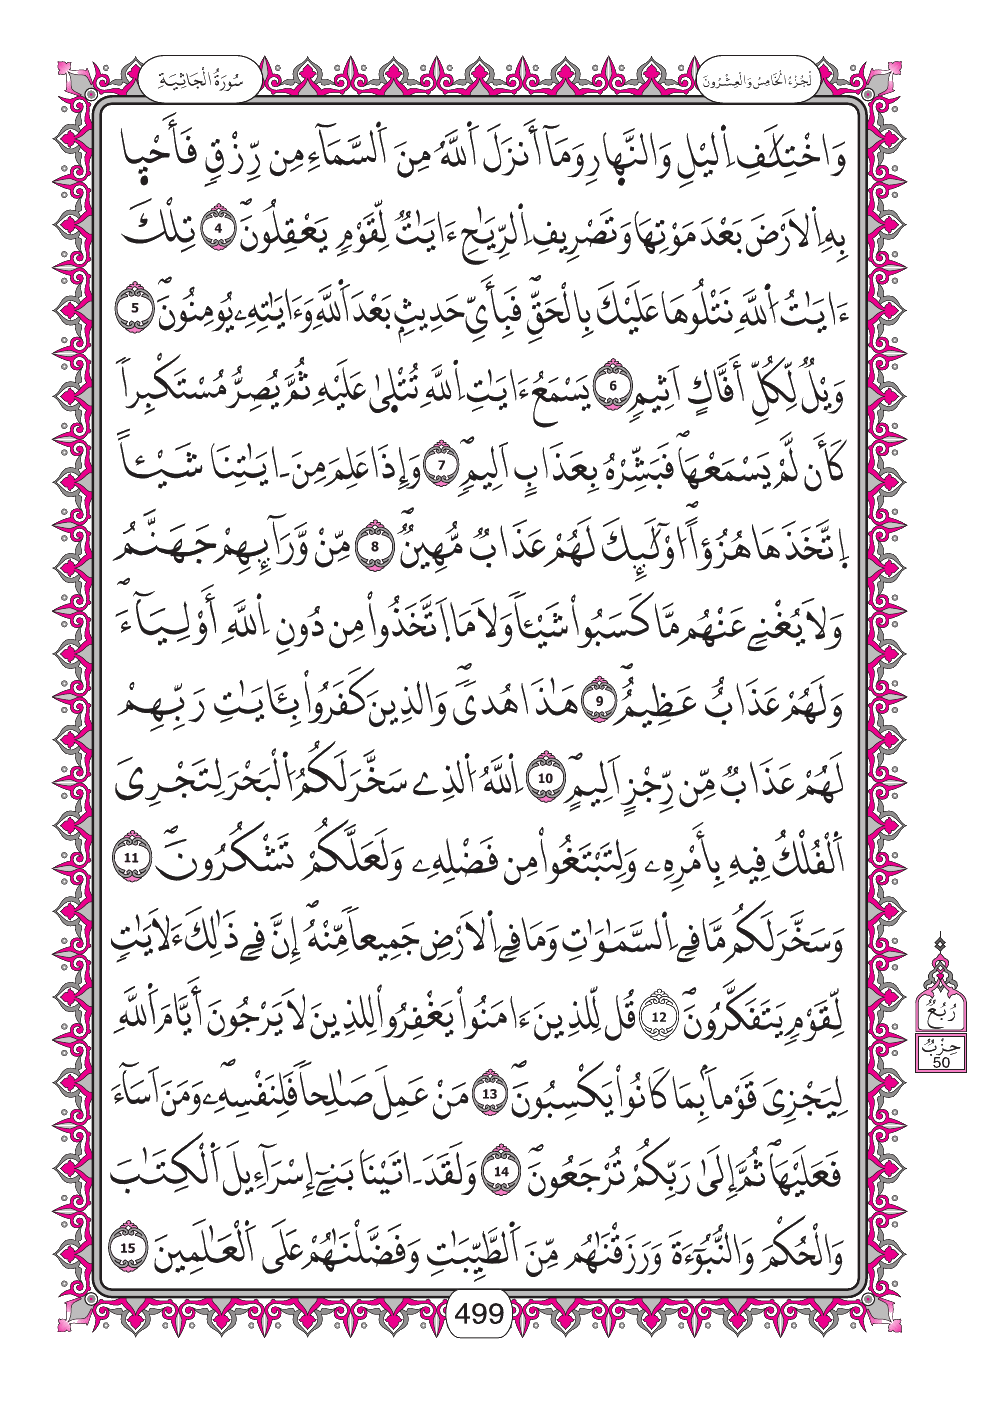 سُورَةُ الْجَاثِيَةِ
اَلْجُزْءُ الْخَامِسُ وَالْعِشْرُونَ
وَاخْتِلَٰفِ اِ۬ليْلِ وَالنَّه۪ارِ وَمَآ أَنزَلَ اَ۬للَّهُ مِنَ اَ۬لسَّمَآءِ مِن رِّزْقٖ فَأَحْي۪ا
بِهِ اِ۬لَارْضَ بَعْدَ مَوْتِهَا وَتَصْرِيفِ اِ۬لرِّيَٰحِ ءَايَٰتٞ لِّقَوْمٖ يَعْقِلُونَۖ 4 تِلْكَ
ءَايَٰتُ اُ۬للَّهِ نَتْلُوهَا عَلَيْكَ بِالْحَقِّۖ فَبِأَيِّ حَدِيثِۢ بَعْدَ اَ۬للَّهِ وَءَايَٰتِهِۦ يُومِنُونَۖ 5
وَيْلٞ لِّكُلِّ أَفَّاكٍ اَثِيمٖ 6 يَسْمَعُ ءَايَٰتِ اِ۬للَّهِ تُتْل۪يٰ عَلَيْهِ ثُمَّ يُصِرُّ مُسْتَكْبِراٗ
كَأَن لَّمْ يَسْمَعْهَاۖ فَبَشِّرْهُ بِعَذَابٍ اَلِيمٖۖ 7 وَإِذَا عَلِمَ مِنَ اٰيَٰتِنَا شَيْـٔاً
اِ۪تَّخَذَهَا هُزُؤاًۖ ا۟وْلَٰٓئِكَ لَهُمْ عَذَابٞ مُّهِينٞۖ 8 مِّنْ وَّرَآئِهِمْ جَهَنَّمُۖ
وَلَا يُغْنِے عَنْهُم مَّا كَسَبُواْ شَيْـٔاٗ وَلَا مَا اَ۪تَّخَذُواْ مِن دُونِ اِ۬للَّهِ أَوْلِيَآءَۖ
وَلَهُمْ عَذَابٞ عَظِيمٌۖ 9 هَٰذَا هُديٗۖ وَالذِينَ كَفَرُواْ بِـَٔايَٰتِ رَبِّهِمْ
لَهُمْ عَذَابٞ مِّن رِّجْزٍ اَلِيمٍۖ 10 اِ۬للَّهُ اُ۬لذِے سَخَّرَ لَكُمُ اُ۬لْبَحْرَ لِتَجْرِيَ
اَ۬لْفُلْكُ فِيهِ بِأَمْرِهِۦ وَلِتَبْتَغُواْ مِن فَضْلِهِۦ وَلَعَلَّكُمْ تَشْكُرُونَۖ 11
وَسَخَّرَ لَكُم مَّا فِے اِ۬لسَّمَٰوَٰتِ وَمَا فِے اِ۬لَارْضِ جَمِيعاٗ مِّنْهُۖ إِنَّ فِے ذَٰلِكَ ءَلَايَٰتٖ
لِّقَوْمٖ يَتَفَكَّرُونَۖ 12 قُل لِّلذِينَ ءَامَنُواْ يَغْفِرُواْ لِلذِينَ لَا يَرْجُونَ أَيَّامَ اَ۬للَّهِ
لِيَجْزِيَ قَوْماَۢ بِمَا كَانُواْ يَكْسِبُونَۖ 13 مَنْ عَمِلَ صَٰلِحاٗ فَلِنَفْسِهِۦۖ وَمَنَ اَسَآءَ
فَعَلَيْهَاۖ ثُمَّ إِلَيٰ رَبِّكُمْ تُرْجَعُونَۖ 14 وَلَقَدَ اٰتَيْنَا بَنِےٓ إِسْرَآءِيلَ اَ۬لْكِتَٰبَ
وَالْحُكْمَ وَالنُّبُوٓءَةَ وَرَزَقْنَٰهُم مِّنَ اَ۬لطَّيِّبَٰتِ وَفَضَّلْنَٰهُمْ عَلَي اَ۬لْعَٰلَمِينَ 15
رُبُعُ
حِزْبٌ
50
499